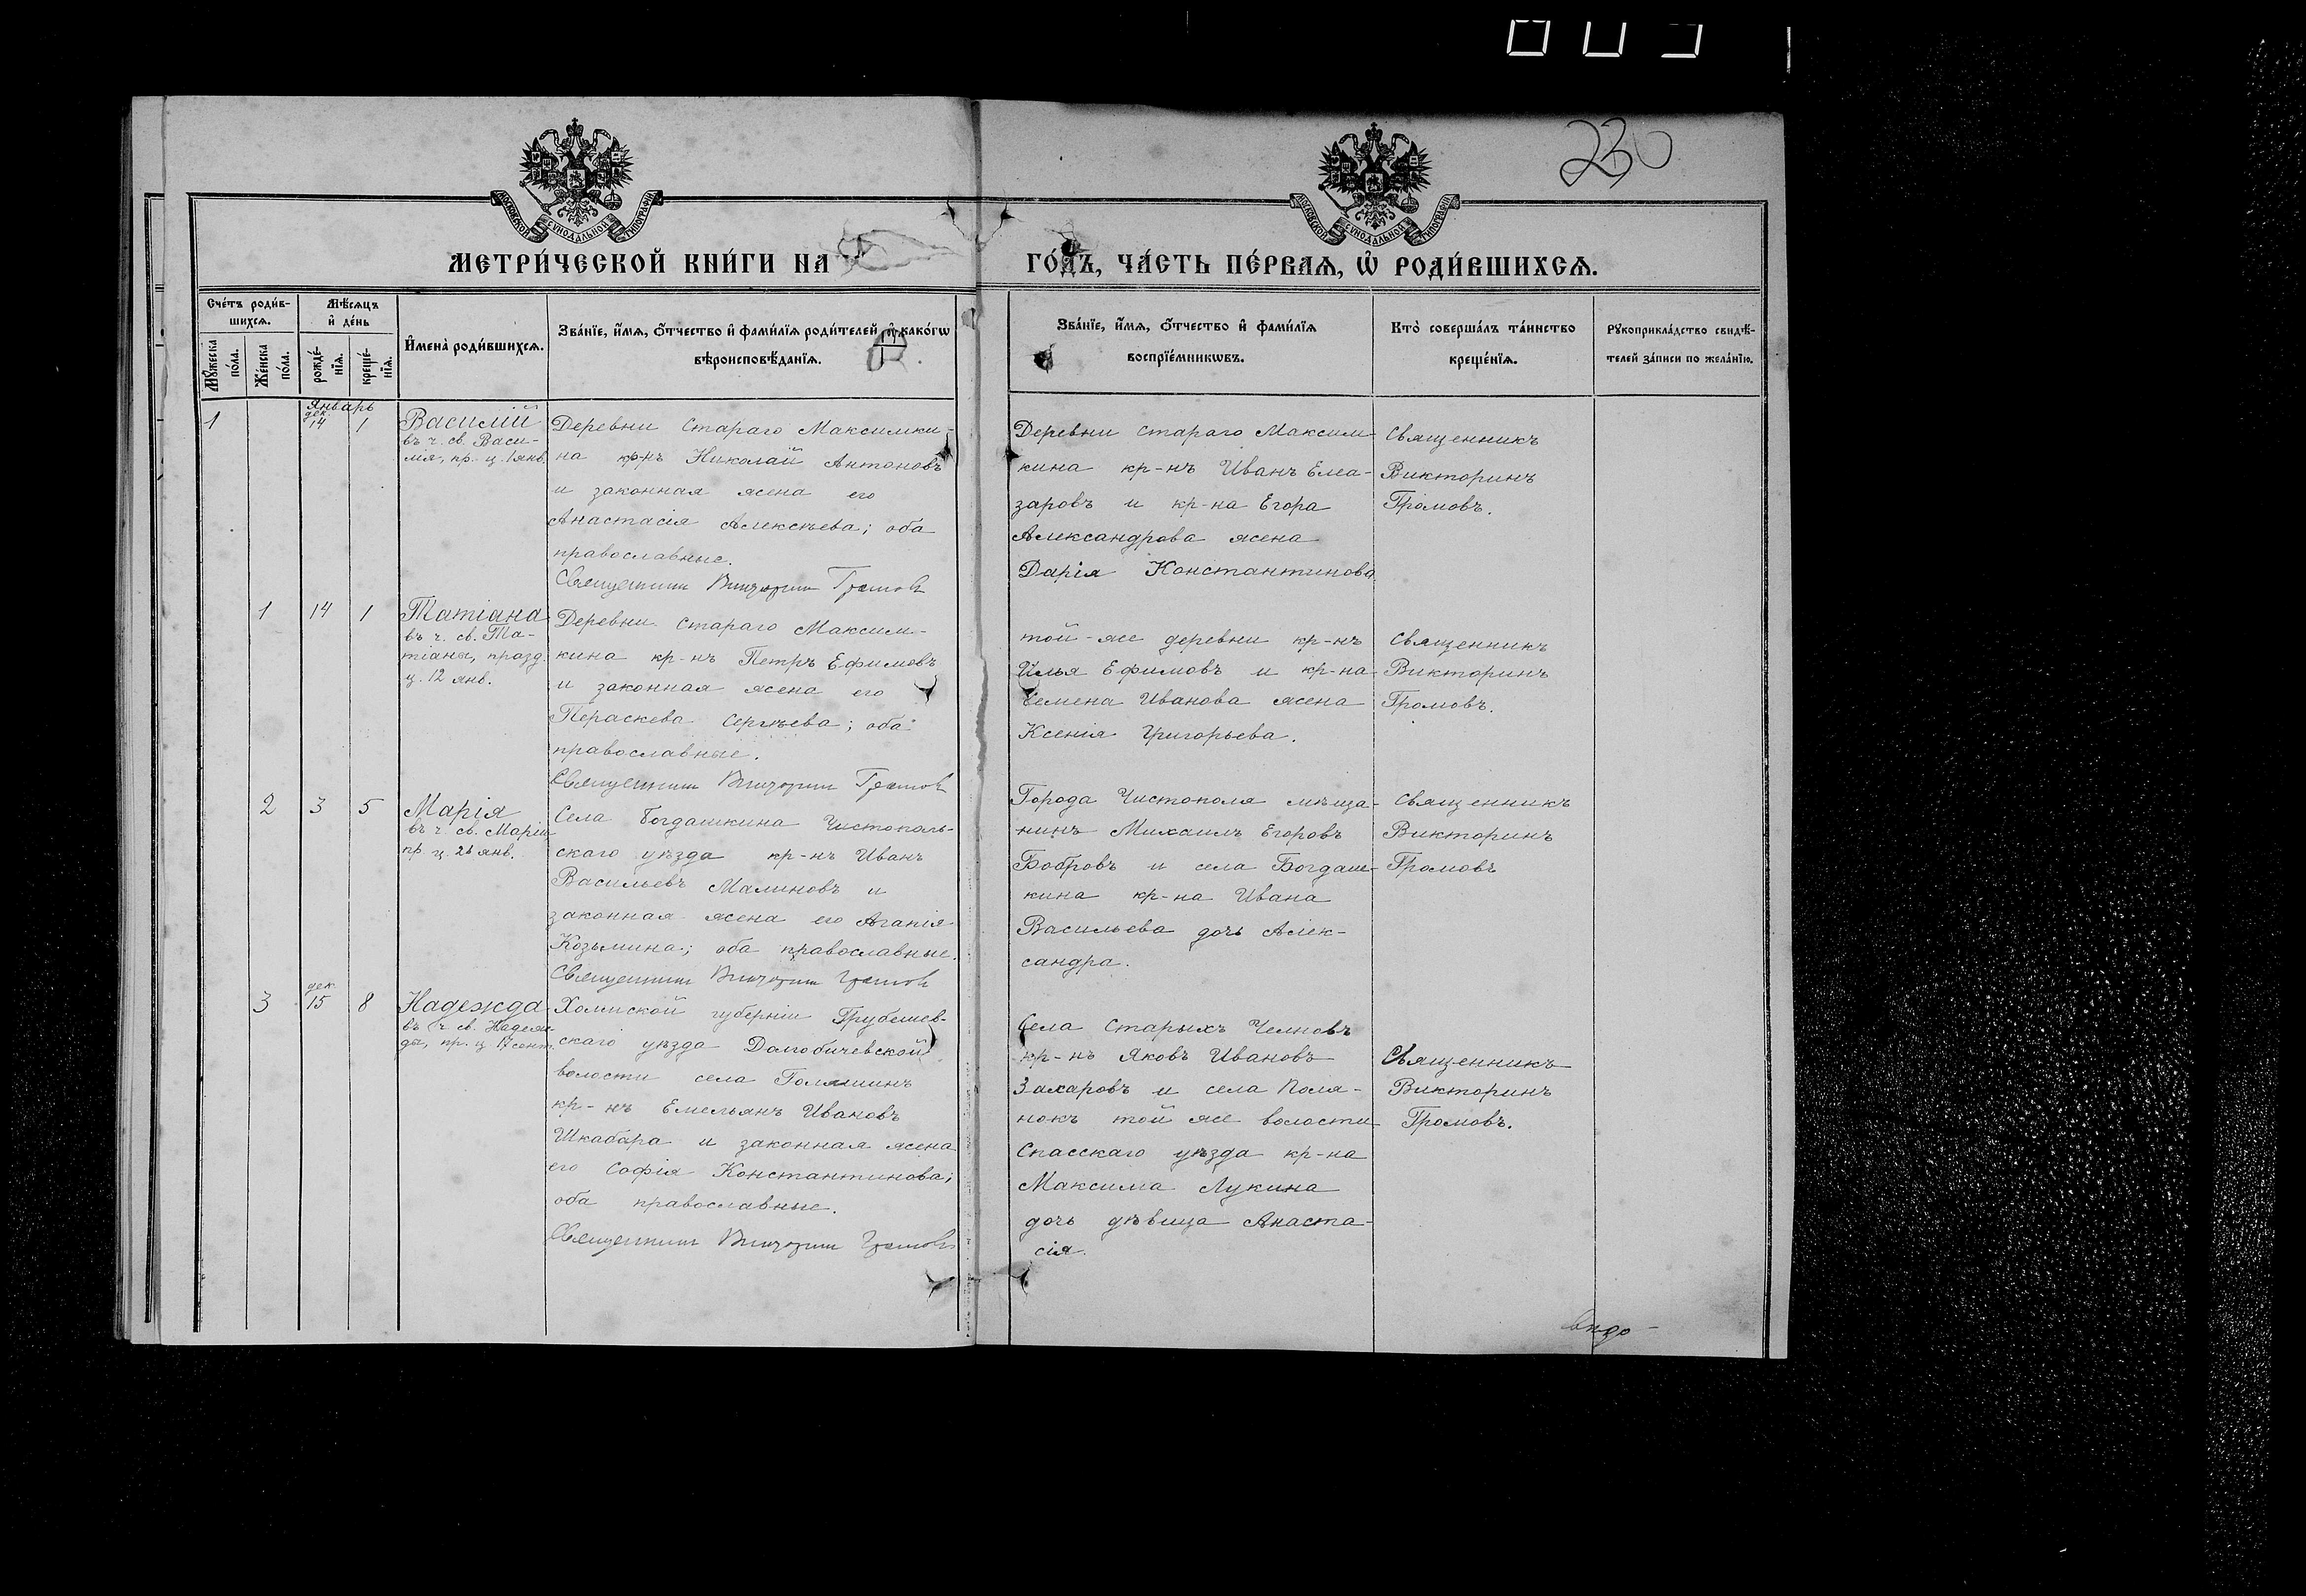 230
МОСКОВСКОЙ СѴНОДАЛЬНОЙ ТИПОГРАФІИ
МОСКОВСКОЙ СѴНОДАЛЬНОЙ ТИПОГРАФІИ
МЕТРИ́ЧЕСКОЙ КНИ́ГИ НА
ГО́ДЪ, ЧА́СТЬ ПЕ́РВАѦ, Ѡ҆ РОДИ́ВШИХСѦ.
Сче́тъ роди́в-
шихсѧ.
Мѣ́сѧцъ
и҆ де́нь
Мꙋ́жеска
по́ла.
Же́нска
по́ла.
рожде́-
нїѧ.
креще́-
нїѧ.
И҆мена̀ роди́вшихсѧ.
Зва́нїе, и҆́мѧ, ѻ҆́тчество и҆ фами́лїѧ роди́телей, и҆ како́гѡ
вѣроисповѣ́данїѧ.
Зва́нїе, и҆́мѧ, ѻ҆́тчество и҆ фами́лїѧ
воспрїе́мникѡвъ.
Кто̀ соверша́лъ та́инство
креще́нїѧ.
Рꙋкоприкла́дство свидѣ́-
телей за́писи по жела́нїю.
Январь
1
дек.
14
1
Василій
въ ч. св. Васи-
лія, пр. ц. 1 янв.
Деревни Стараго Максимки-
на кр-нъ Николай Антоновъ
и законная жена его
Анастасія Алексѣева; оба
православные.
Священникъ Викторинъ Громовъ
Деревни Стараго Максим-
кина кр-нъ Иванъ Елеа-
заровъ и кр-на Егора
Александрова жена
Дарія Константинова
Священникъ
Викторинъ
Громовъ.
1
14
1
Татіана
въ ч. св. Та-
тіаны, празд.
ц. 12 янв.
Деревни Стараго Максим-
кина кр-нъ Петръ Ефимовъ
и законная жена его
Пераскева Сергѣева; оба
православные.
Священникъ Викторинъ Громовъ
той-же деревни кр-нъ
Илья Ефимовъ и кр-на
Семена Иванова жена
Ксенія Григорьева.
Священникъ
Викторинъ
Громовъ.
2
3
5
Марія
въ ч. св. Маріи
пр. ц. 26 янв.
Села Богдашкина Чистополь-
скаго уѣзда кр-нъ Иванъ
Васильевъ Малиновъ и
законная жена его Агапія
Козьмина; оба православные.
Священникъ Викторинъ Громовъ
Города Чистополя мѣща-
нинъ Михаилъ Егоровъ
Бобровъ и села Богдаш-
кина кр-на Ивана
Васильева дочь Алек-
сандра.
Священникъ
Викторинъ
Громовъ
3
дек.
15
8
Надежда
въ ч. св. Надеж-
ды, пр. ц. 17 сент.
Холмской губерніи Грубешев-
скаго уѣзда Долгобичевской
волости села
кр-нъ Емельянъ Ивановъ
Шкабара и законная жена
его Софія Константинова;
оба православные.
Священникъ Викторинъ Громовъ
Села Старыхъ Челновъ
кр-нъ Яковъ Ивановъ
Захаровъ и села Поля-
нокъ той же волости
Спасскаго уѣзда кр-на
Максима Лукина
дочь дѣвица Анаста-
сія.
Священникъ
Викторинъ
Громовъ.